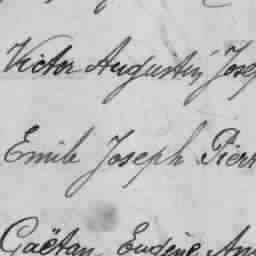 Victor Augustin Jose
Emile Joseph Pierr
Gaëtan Eugène An